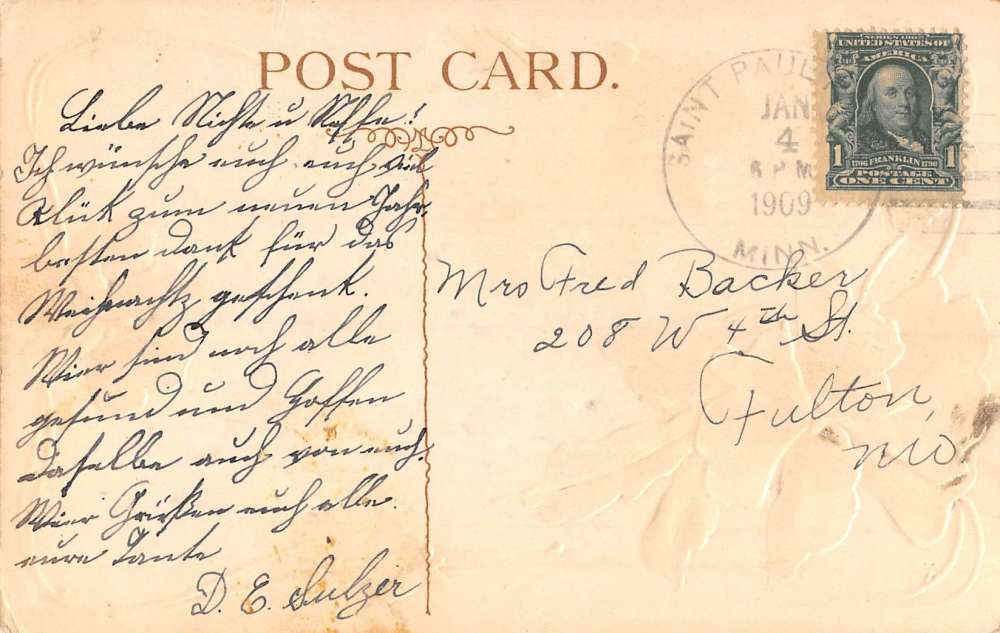 POST CARD.
Liebe Nichte u Neffe!
Ich wünsche euch auch viel
Glük zum neuen Jahr,
besten dank für das
Weihnachtz geschenk.
Wier sind noch alle
gesund und hoffen
daselbe auch von euch.
Wier Grüßen euch alle.
eure Tante
D. E. Sulzer
SAINT PAUL
JAN
4
6 PM
1909
MINN.
SERIES 1902
UNITED STATES OF
AMERICA
1706 FRANKLIN 1790
1 POSTAGE 1
ONE CENT
Mrs Fred Backer
208 W 4th St.
Fulton,
Mo.